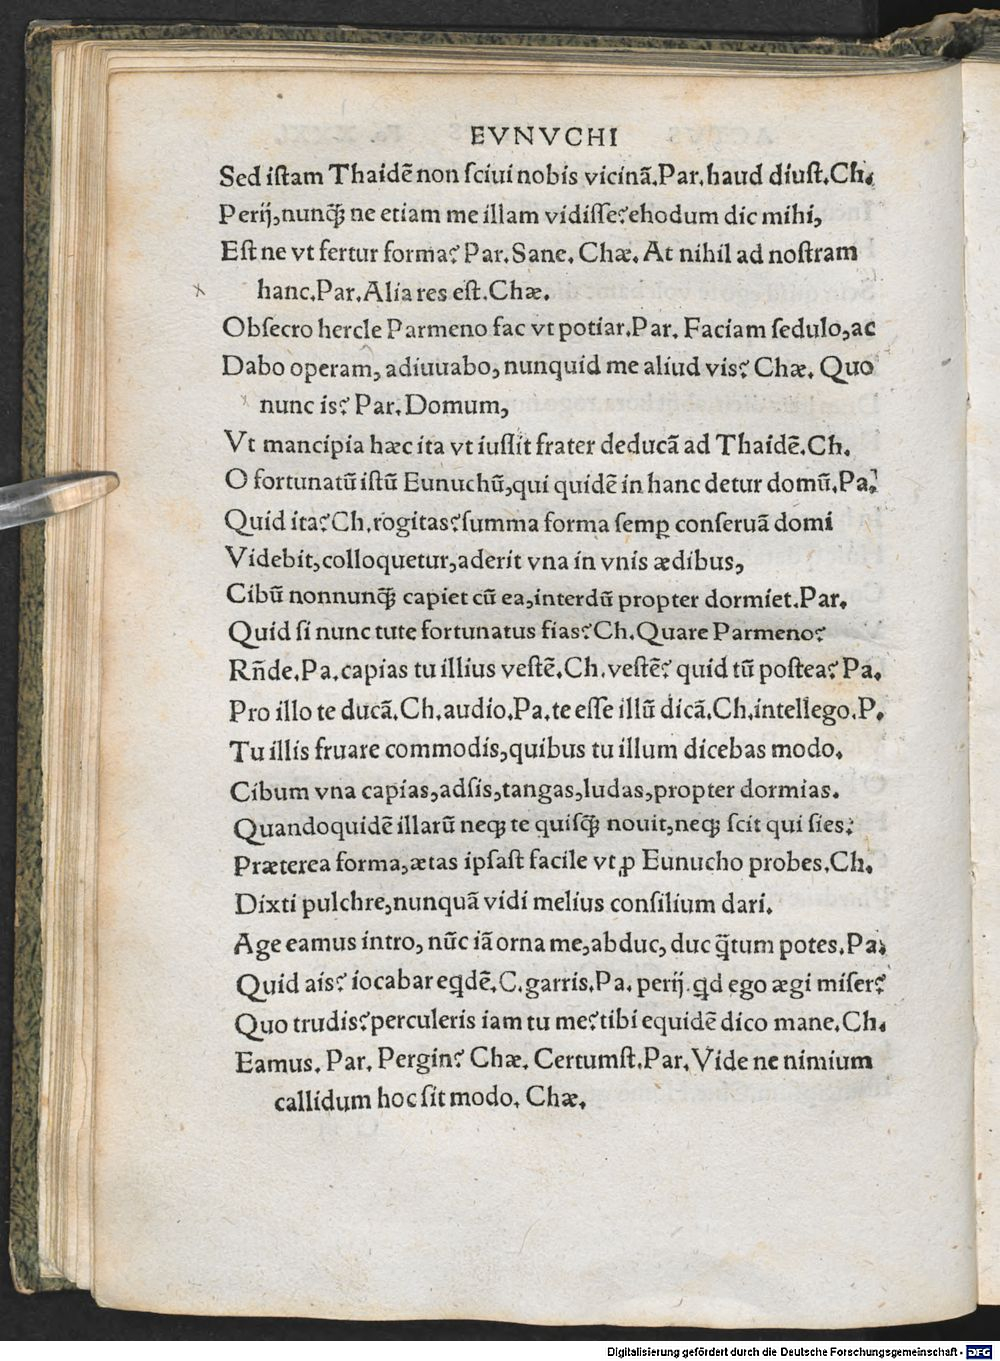 EVNVCHI
Sed istam Thaidē non sciui nobis vicinā.Par.haud diust.Ch.
Perij,nunq̃ ne etiam me illam vidisse?ehodum dic mihi,
Est ne vt fertur forma? Par.Sane. Chæ. At nihil ad nostram
hanc.Par.Alia res est.Chæ.
Obsecro hercle Parmeno fac vt potiar.Par. Faciam sedulo,ac
Dabo operam, adiuuabo, nunquid me aliud vis? Chæ. Quo
nunc is? Par.Domum,
Vt mancipia hæc ita vt iussit frater deducā ad Thaidē.Ch.
O fortunatū istū Eunuchū,qui quidē in hanc detur domū.Pa.
Quid ita?Ch.rogitas?summa forma semꝑ conseruā domi
Videbit,colloquetur,aderit vna in vnis ædibus,
Cibū nonnunq̃ capiet cū ea,interdū propter dormiet.Par.
Quid si nunc tute fortunatus fias?Ch.Quare Parmeno?
Rñde.Pa.capias tu illius vestē.Ch.vestē? quid tū postea? Pa.
Pro illo te ducā.Ch.audio.Pa.te esse illū dicā.Ch.intellego.P.
Tu illis fruare commodis,quibus tu illum dicebas modo.
Cibum vna capias,adsis,tangas,ludas,propter dormias.
Quandoquidē illarū neqꝫ te quisq̃ nouit,neqꝫ scit qui sies?
Præterea forma,ætas ipsast facile vt ꝓ Eunucho probes.Ch.
Dixti pulchre,nunquā vidi melius consilium dari.
Age eamus intro, nūc iā orna me,abduc, duc q̃tum potes.Pa.
Quid ais? iocabar eqdē.C.garris.Pa. perij.qd ego ægi miser?
Quo trudis?perculeris iam tu me?tibi equidē dico mane.Ch.
Eamus. Par. Pergin? Chæ. Certumst.Par.Vide ne nimium
callidum hoc sit modo. Chæ.
Digitalisierung gefördert durch die Deutsche Forschungsgemeinschaft - DFG